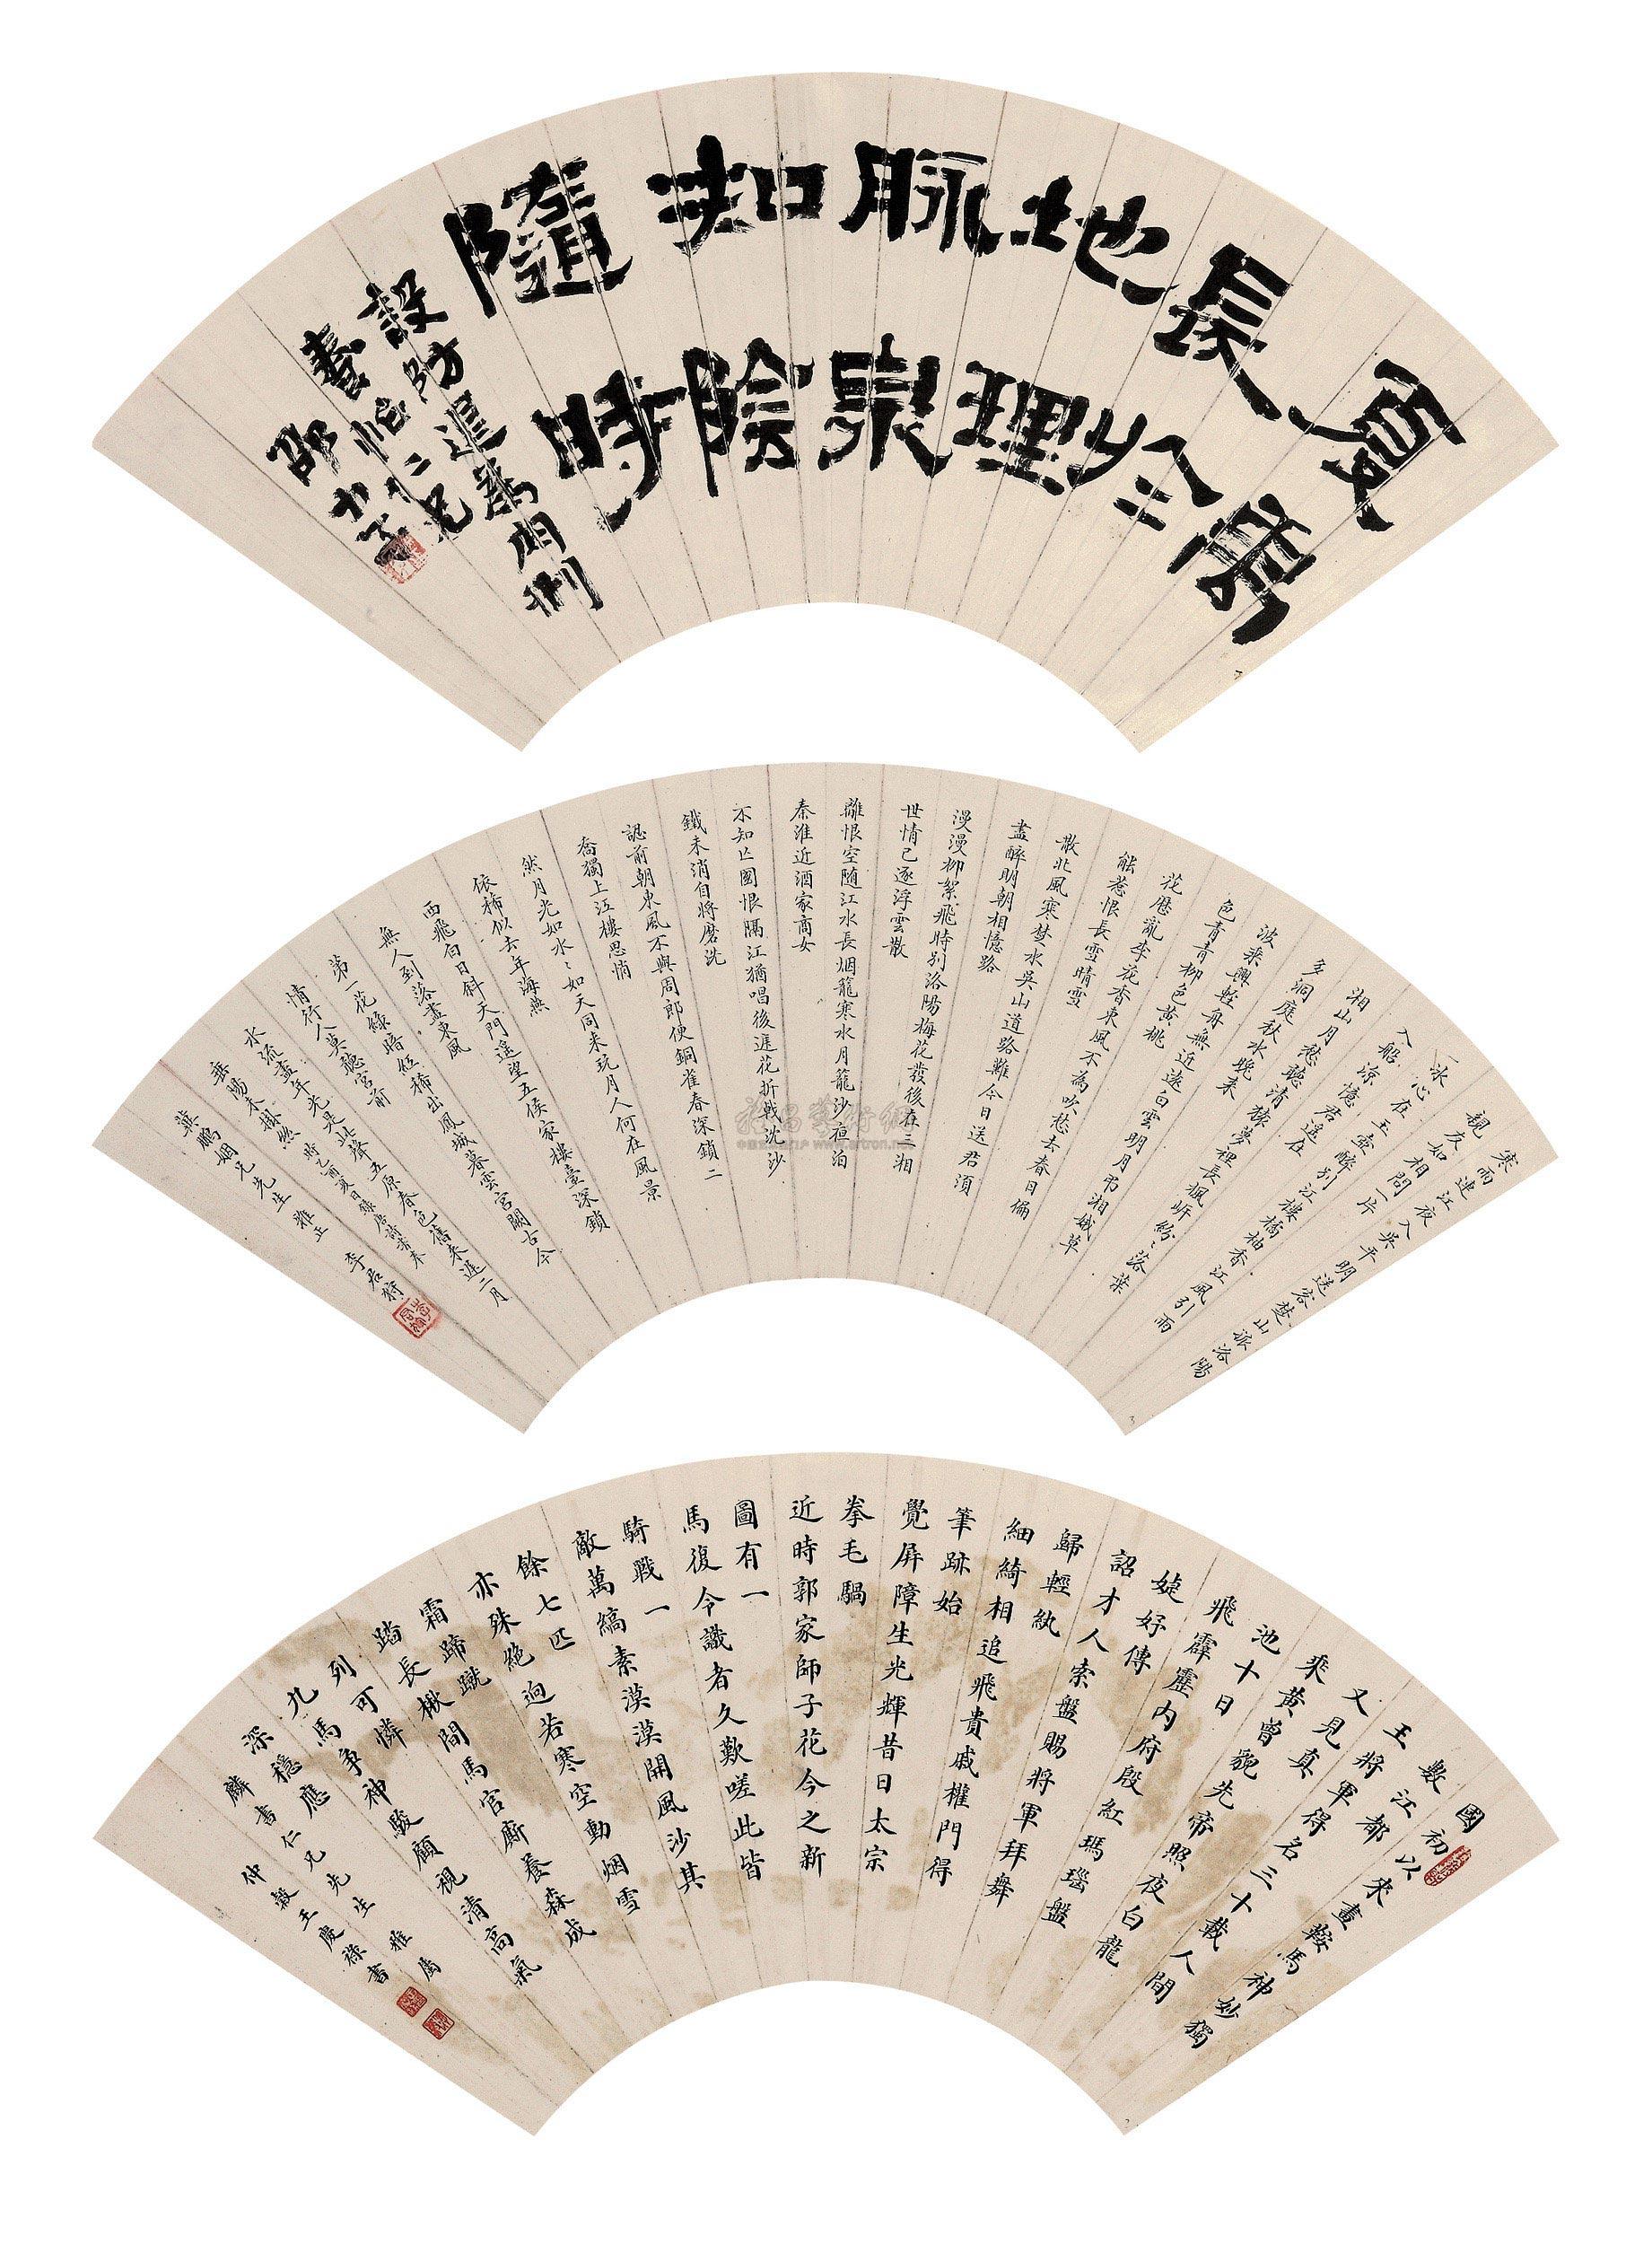 夏
長於
地理
脉泉
知陰
隨時
寒雨連江夜入吳平明送客楚山孤洛陽
親友如相問一片
冰心在玉壺醉別江樓橘柚香江風引雨
入船涼憶君遙在
湘山月愁聽清猿夢裡長楓岸紛〻落葉
多洞庭秋水晚來
波乘興輕舟無近遠白雲明月弔湘娥草
色青青柳色黃桃
花歷亂李花香東風不為吹愁去春日偏
能惹恨長雪晴雲
散北風寒楚水吳山道路難今日送君須
盡醉明朝相憶路
漫漫柳絮飛時別洛陽梅花發後在三湘
世情已逐浮雲散
離恨空隨江水長烟籠寒水月籠沙夜泊
秦淮近酒家商女
不知亡國恨隔江猶唱後遅花折戟沈沙
鐵未消自將磨洗
認前朝東風不與周郎便銅雀春深鎖二
喬獨上江樓思悄
然月光如水〻如天同來玩月人何在風景
依稀似去年海燕
西飛白日斜天門遙望五侯家樓臺深鎖
無人到落盡東風
第一花綠暗紅稀出鳳城暮雲宮闕古今
情行人莫聽宮前
水流盡年光是此聲五原春色舊來遲二月
垂陽未掛絲
冀鵬姻兄先生雅正 李君
國初以來畫鞍馬神妙獨
數江都
王將軍得名三十載人間
又見真
乘黃曾貌先帝照夜白龍
池十日
飛霹靂內府殷紅瑪瑙盤
婕妤傳
詔才人索盤賜將軍拜舞
歸輕紈
細綺相追飛貴戚權門得
筆跡始
覺屏障生光輝昔日太宗
拳毛騧
近時郭家師子花今之新
圖有一
馬復令識者久歎嗟此皆
騎戰一
敵萬縞素漠漠開風沙其
餘七匹
亦殊絕迥若寒空動烟雪
霜蹄蹴
踏長楸間馬官廝養森成
列可憐
九馬爭神駿顧視清高氣
深穩應
麟書仁兄先生雅屬
仲穀王慶祿書